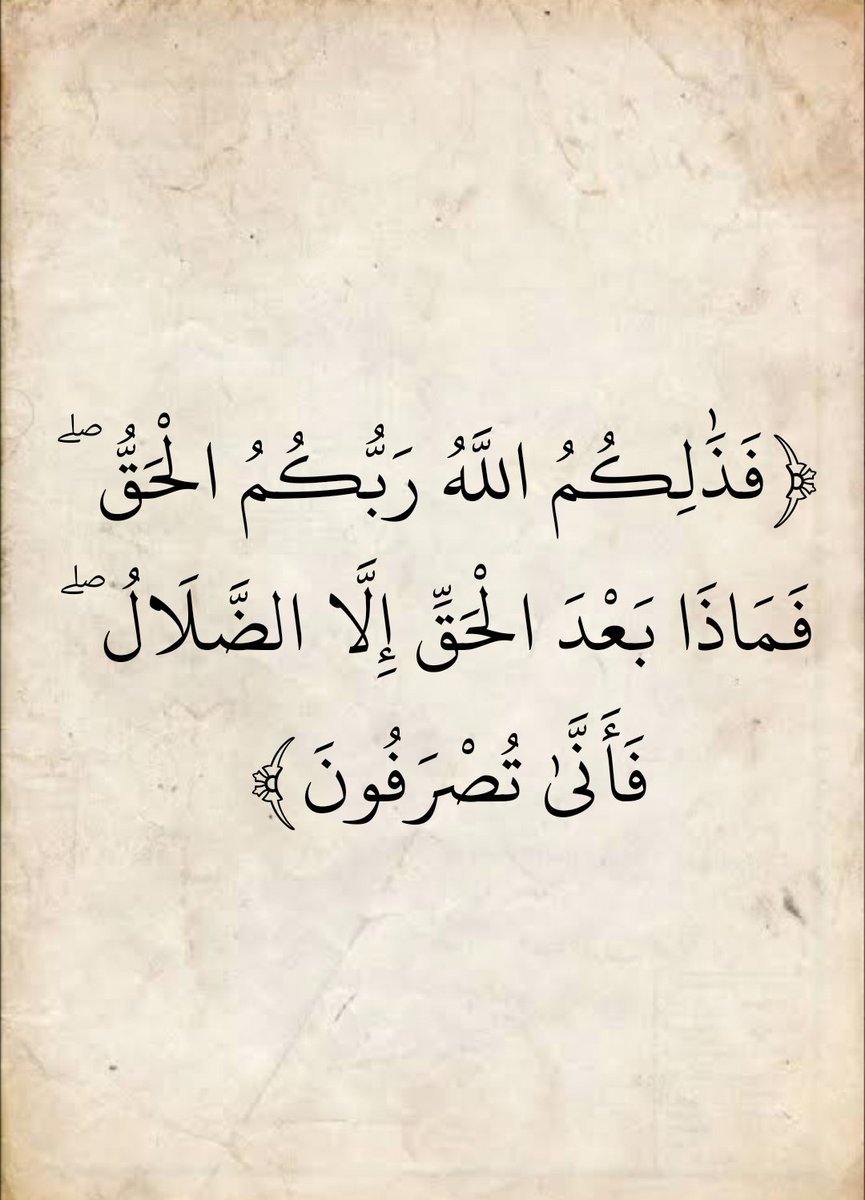 ﴿فَذَٰلِكُمُ اللَّهُ رَبُّكُمُ الْحَقُّ ۖ
فَمَاذَا بَعْدَ الْحَقِّ إِلَّا الضَّلَالُ ۖ
فَأَنَّىٰ تُصْرَفُونَ﴾